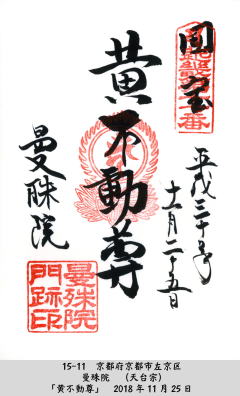 国宝
黄不動尊
平成三十年
十一月二十五日
曼殊院
曼殊院
門跡印
15-11 京都府京都市左京区
曼殊院 (天台宗)
「黄不動尊」 2018年11月25日